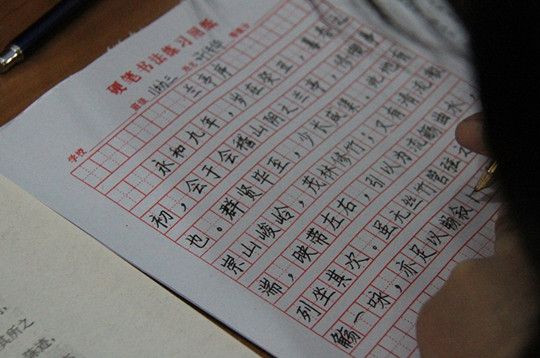 硬笔书法练习用纸
学校
班级
兰亭序
永和九年，岁在癸丑，暮春之
初，会于会稽山阴之兰亭，修禊事
也。群贤毕至，少长咸集。此地有
崇山峻岭，茂林修竹；又有清流激
湍，映带左右，引以为流觞曲水，
列坐其次。虽无丝竹管弦之
觞一味，亦足以畅叙
所之
陈迹，